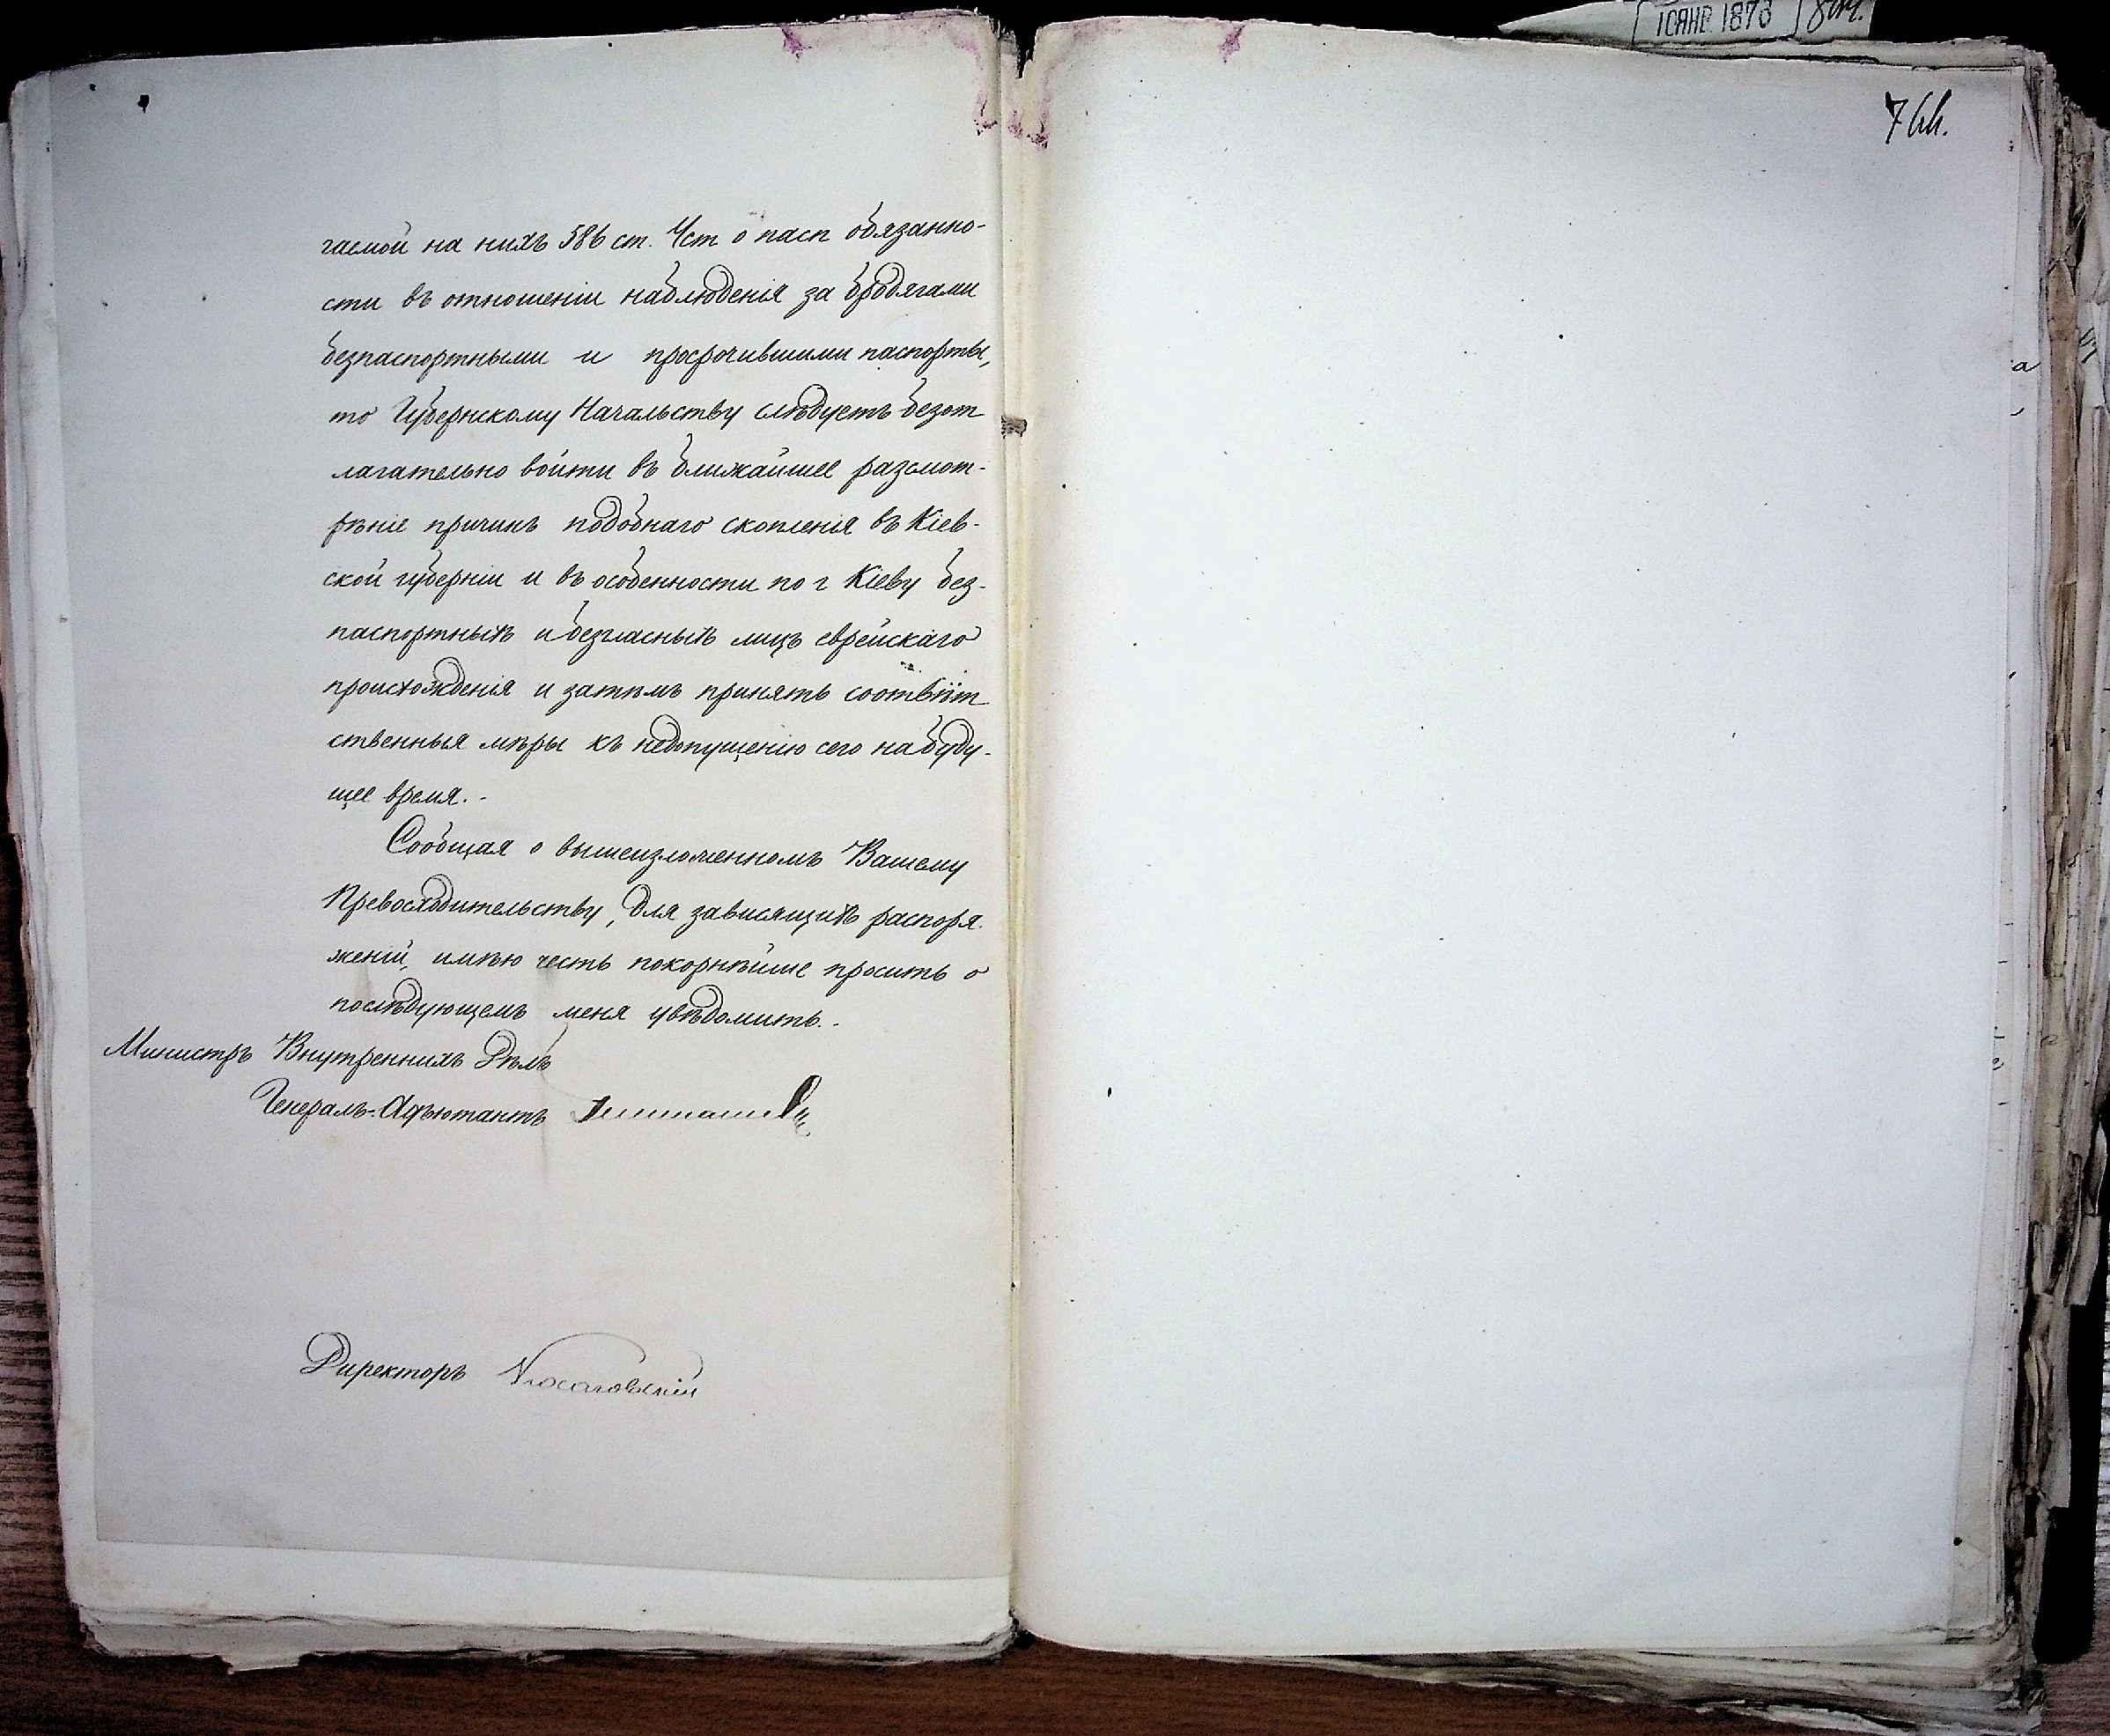 гаемой на нихъ 586 ст. Уст о пасп обязанно-
сти въ отношеніи наблюденія за бродягами
безпаспортными и просрочившими паспорты,
то Губернскому Начальству слѣдуетъ безот
лагательно войти въ ближайшее разсмот-
рѣніе причинъ подобнаго скопленія въ Кіев-
ской губерніи и въ особенности по г Кіеву без-
паспортныхъ и безгласныхъ лицъ еврейскаго
происхожденія и затѣмъ принять соотвѣт
ственныя мѣры къ недопущенію сего на буду-
щее время.-
Сообщая о вышеизложенномъ Вашему
Превосходительству, для зависящихъ распоря-
женій, имѣю честь покорнѣйше просить о
послѣдующемъ меня увѣдомить.-
Министръ Внутреннихъ Дѣлъ
Генералъ-Адъютантъ Тимашевъ
Директоръ Косаговскій
10 ЯНВ 1873